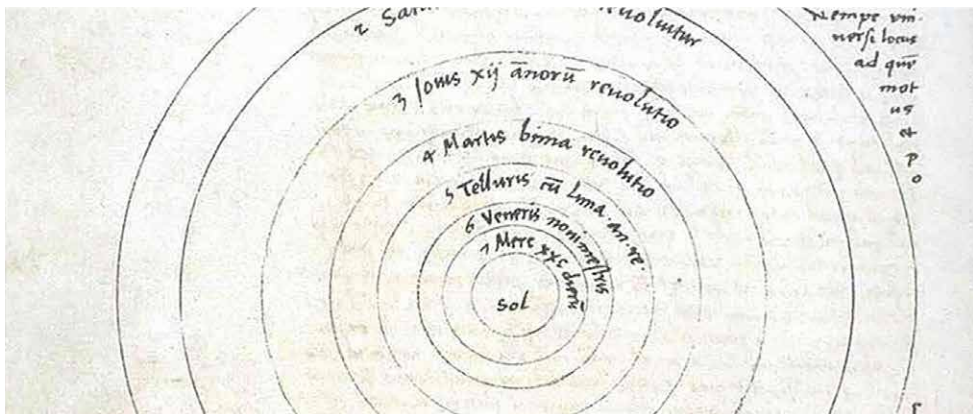 2 Sat reuoluitur
3 Iouis xij ānorū reuolutio
4 Martis bima reuolutio
5 Telluris cū luna. an. re
6 Veneris nonimestris
7 Merc xxc dierū
Sol
Nempe vni
uersi locus
ad quē
mot
us
et
p
o